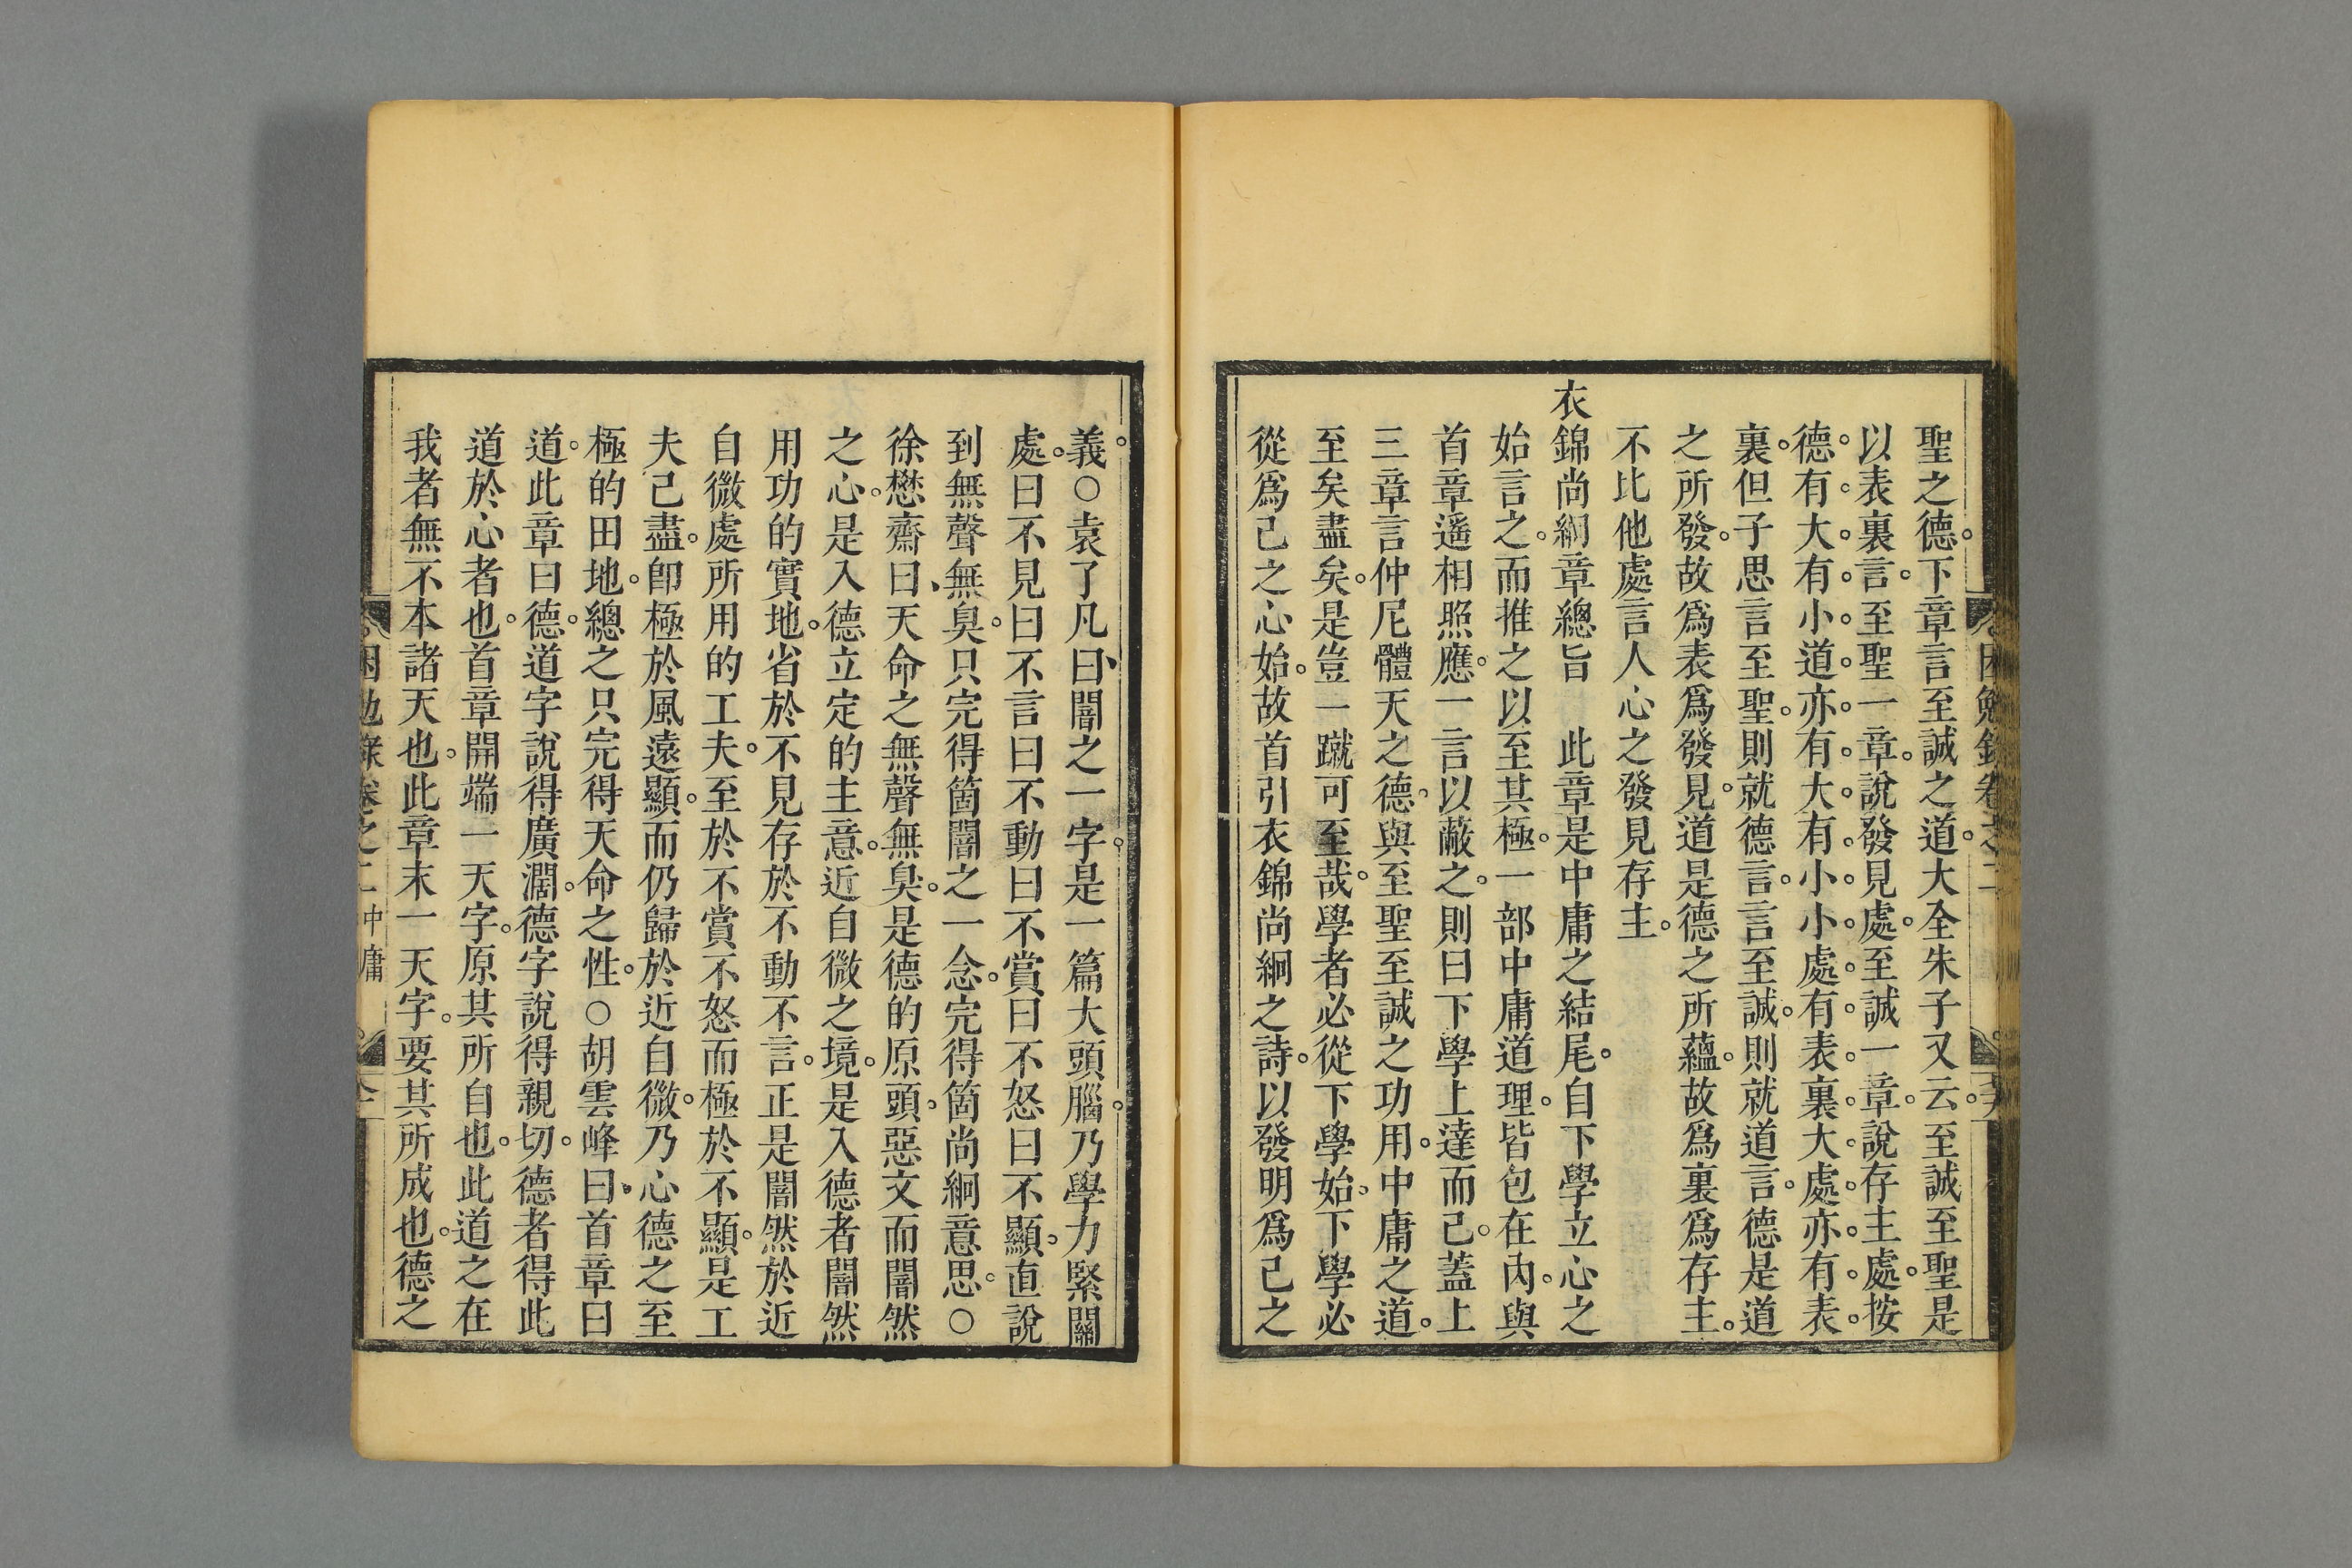 聖之德。下章言至誠之道。大全朱子又云。至誠至聖是
以表裏言。至聖一章。說發見處。至誠一章。說存主處。按
德。有。大。有。小。道。亦。有。大。有。小。小。處。有。表。裏。大。處。亦。有。表。
裏。但子思言至聖。則就德言。言至誠。則就道言。德是道
之所發。故爲表爲發見。道是德之所蘊。故爲裏爲存主。
不比他處言人心之發見存主。
衣錦尚絅章總旨　此章是中庸之結尾。自下學立心之
始言之。而推之以至其極。一部中庸道理。皆包在內。與
首章遥相照應。一言以蔽之。則曰下學上達而已。蓋上
三章言仲尼體天之德。與至聖至誠之功用。中庸之道。
至矣盡矣。是豈一蹴可至哉。學者必從下學始。下學必
從爲己之心始。故首引衣錦尚絅之詩。以發明爲己之
義。○袁了凡曰、闇之一字。是一篇大頭腦。乃學力緊關
處。曰不見曰不言曰不動曰不賞曰不怒曰不顯。直說
到無聲無臭。只完得箇闇之一念。完得箇尚絅意思。○
徐懋齋曰、天命之無聲無臭。是德的原頭。惡文而闇然
之心。是入德立定的主意。近自微之境。是入德者闇然
用功的實地。省於不見存於不動不言。正是闇然於近
自微處所用的工夫。至於不賞不怒而極於不顯。是工
夫已盡。卽極於風遠顯。而仍歸於近自微。乃心德之至
極的田地。總之只完得天命之性。○胡雲峰曰、首章曰
道。此章曰德。道字說得廣濶。德字說得親切。德者得此
道於心者也。首章開端一天字。原其所自也。此道之在
我者無不本諸天也。此章末一天字。要其所成也。德之
困勉錄卷之二 中庸